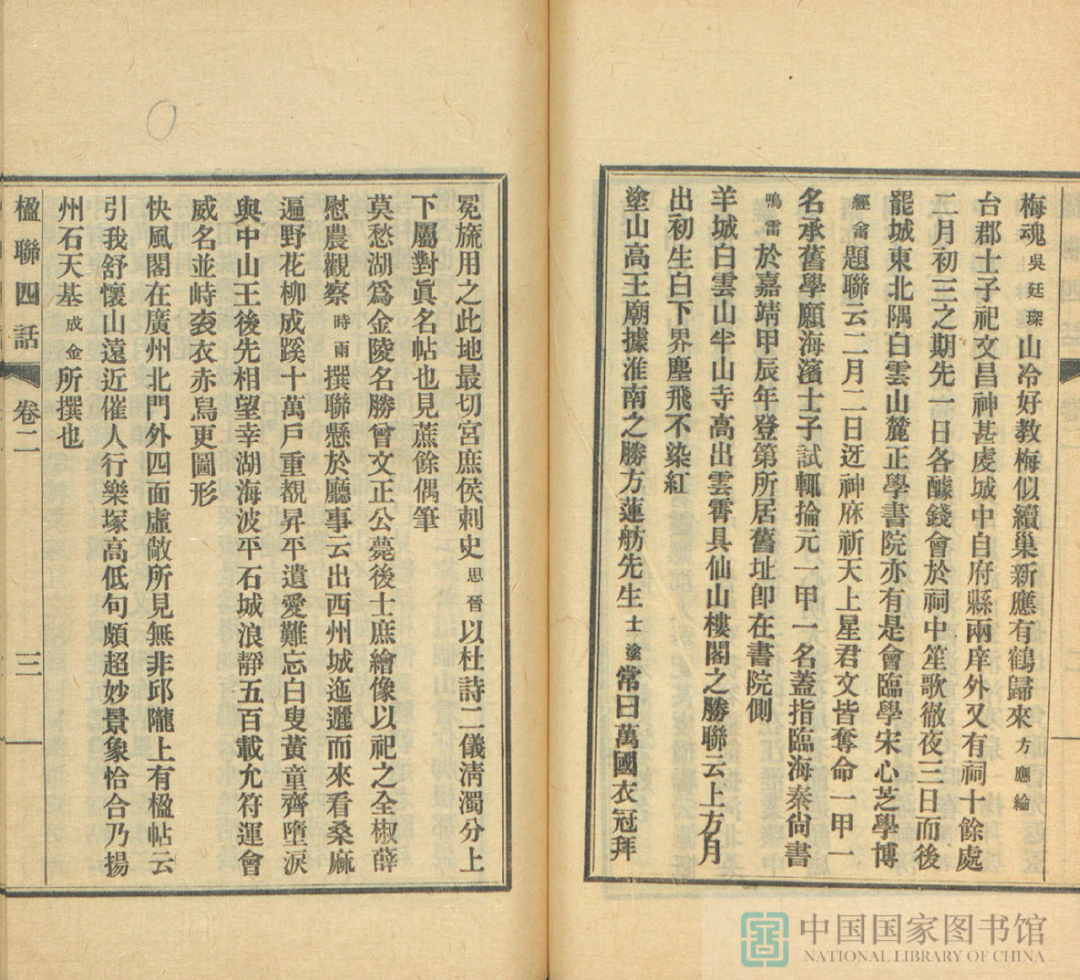 梅魂吳廷琛山冷好教梅似續巢新應有鶴歸來方應綸
台郡士子祀文昌神甚虔城中自府縣兩庠外又有祠十餘處
二月初三之期先一日各醵錢會於祠中笙歌徹夜三日而後
罷城東北隅白雲山麓正學書院亦有是會臨學宋心芝學博
經畬題聯云二月二日迓神庥祈天上星君文皆奪命一甲一
名承舊學願海濱士子試輒掄元一甲一名蓋指臨海秦尙書
鳴雷於嘉靖甲辰年登第所居舊址卽在書院側
羊城白雲山半山寺高出雲霄具仙山樓閣之勝聯云上方月
出初生白下界塵飛不染紅
塗山高王廟據淮南之勝方蓮舫先生士塗常曰萬國衣冠拜
冕旒用之此地最切宮庶侯刺史思晉以杜詩二儀淸濁分上
下屬對眞名帖也見蔗餘偶筆
莫愁湖爲金陵名勝曾文正公薨後士庶繪像以祀之全椒薛
慰農觀察時雨撰聯懸於廳事云出西州城迤邐而來看桑麻
遍野花柳成蹊十萬戶重覩昇平遺愛難忘白叟黃童齊墮淚
與中山王後先相望幸湖海波平石城浪靜五百載允符運會
威名並峙袞衣赤舃更圖形
快風閣在廣州北門外四面虛敞所見無非邱隴上有楹帖云
引我舒懷山遠近催人行樂塚高低句頗超妙景象恰合乃揚
州石天基成金所撰也
楹聯四話 卷二 三
中国国家图书馆
NATIONAL LIBRARY OF CHINA